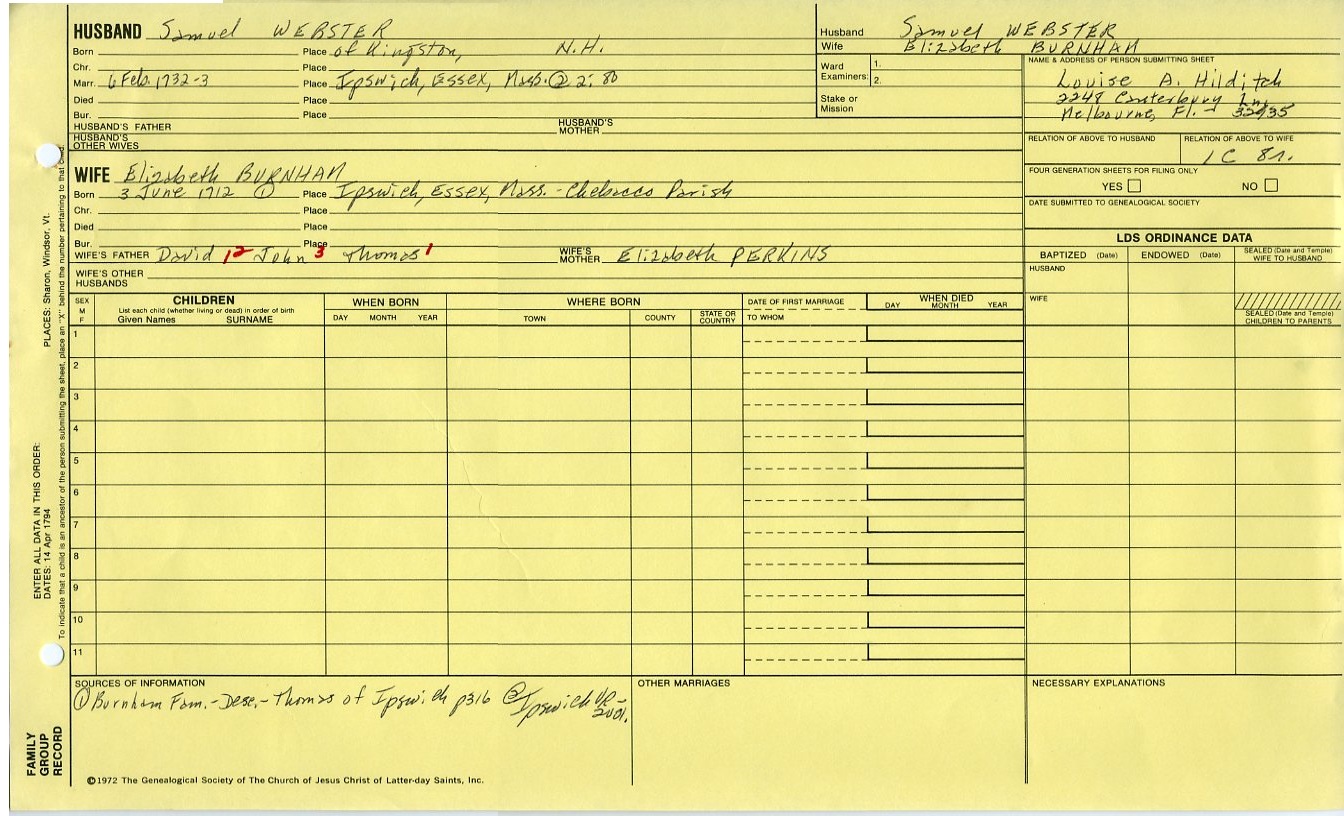 HUSBAND Samuel WEBSTER
Born Place of Kingston, N.H.
Chr. Place
Marr. 6 Feb. 1732-3 Place Ipswich, Essex, Mass. ② 2: 80
Died Place
Bur. Place
HUSBAND'S FATHER HUSBAND'S MOTHER
HUSBAND'S OTHER WIVES
WIFE Elizabeth BURNHAM
Born 3 June 1712 ① Place Ipswich, Essex, Mass. - Chebacco Parish
Chr. Place
Died Place
Bur. Place
WIFE'S FATHER David 12 John 3 Thomas 1 WIFE'S MOTHER Elizabeth PERKINS
WIFE'S OTHER HUSBANDS
Husband Samuel WEBSTER
Wife Elizabeth BURNHAM
Ward Examiners: 1.
2.
Stake or Mission
NAME & ADDRESS OF PERSON SUBMITTING SHEET
Louise A. Hilditch
2248 Canterbury Ln.
Melbourne, Fl. 32935
RELATION OF ABOVE TO HUSBAND RELATION OF ABOVE TO WIFE
1C 8r.
FOUR GENERATION SHEETS FOR FILING ONLY
YES NO
DATE SUBMITTED TO GENEALOGICAL SOCIETY
LDS ORDINANCE DATA
BAPTIZED (Date) ENDOWED (Date) SEALED (Date and Temple) WIFE TO HUSBAND
HUSBAND
WIFE
SEALED (Date and Temple) CHILDREN TO PARENTS
SEX M F
CHILDREN
List each child (whether living or dead) in order of birth
Given Names SURNAME
WHEN BORN
DAY MONTH YEAR
WHERE BORN
TOWN COUNTY STATE OR COUNTRY
DATE OF FIRST MARRIAGE
TO WHOM
WHEN DIED
DAY MONTH YEAR
1
2
3
4
5
6
7
8
9
10
11
SOURCES OF INFORMATION
① Burnham Fam. - Desc. - Thomas of Ipswich p316 ② Ipswich VR - 2vol.
OTHER MARRIAGES
NECESSARY EXPLANATIONS
©1972 The Genealogical Society of The Church of Jesus Christ of Latter-day Saints, Inc.
FAMILY GROUP RECORD
ENTER ALL DATA IN THIS ORDER:
DATES: 14 Apr 1794
PLACES: Sharon, Windsor, Vt.
To indicate that a child is an ancestor of the person submitting the sheet, place an "X" behind the number pertaining to that child.